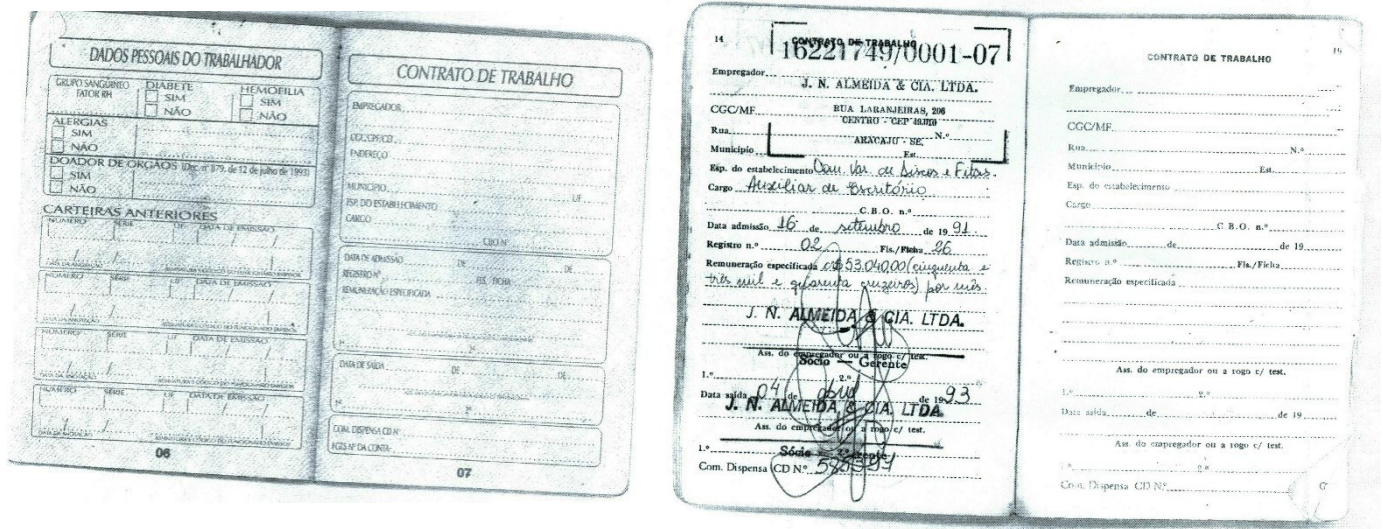 DADOS PESSOAIS DO TRABALHADOR
GRUPO SANGÜÍNEO
FATOR RH
DIABETE
SIM
NÃO
HEMOFILIA
SIM
NÃO
ALERGIAS
SIM
NÃO
DOADOR DE ORGÃOS (Dec. nº 879, de 12 de julho de 1993)
SIM
NÃO
CARTEIRAS ANTERIORES
NÚMERO SÉRIE UF DATA DE EMISSÃO
DATA DA ANOTAÇÃO ASSINATURA E CÓDIGO DO FUNCIONÁRIO EMISSOR
NÚMERO SÉRIE UF DATA DE EMISSÃO
DATA DA ANOTAÇÃO ASSINATURA E CÓDIGO DO FUNCIONÁRIO EMISSOR
NÚMERO SÉRIE UF DATA DE EMISSÃO
DATA DA ANOTAÇÃO ASSINATURA E CÓDIGO DO FUNCIONÁRIO EMISSOR
NÚMERO SÉRIE UF DATA DE EMISSÃO
DATA DA ANOTAÇÃO ASSINATURA E CÓDIGO DO FUNCIONÁRIO EMISSOR
06
CONTRATO DE TRABALHO
EMPREGADOR
CGC/CPF/CEI
ENDEREÇO
MUNICÍPIO UF
ESP. DO ESTABELECIMENTO
CARGO
CBO Nº
DATA DE ADMISSÃO DE DE
REGISTRO Nº FLS. FICHA
REMUNERAÇÃO ESPECIFICADA
1º 2º
DATA DE SAÍDA DE DE
1º 2º
COM. DISPENSA CD Nº
FGTS Nº DA CONTA
07
14
CONTRATO DE TRABALHO
16221749/0001-07
Empregador
J. N. ALMEIDA & CIA. LTDA.
CGC/MF
RUA LARANJEIRAS, 206
CENTRO - CEP 49.010
Rua N.º
ARACAJU - SE.
Município Est.
Esp. do estabelecimento Com. Var. de Discos e Fitas.
Cargo Auxiliar de Escritório
C.B.O. n.º
Data admissão 16 de setembro de 1991
Registro n.º 02 Fls./Ficha 26
Remuneração especificada Cr$53.040,00 (cinquenta e
três mil e quarenta cruzeiros) por mês.
J. N. ALMEIDA & CIA. LTDA.
Ass. do empregador ou a rogo c/ test.
Sócio — Gerente
1.º 2.º
Data saída 04 de abril de 1993
J. N. ALMEIDA & CIA. LTDA.
Ass. do empregador ou a rogo c/ test.
1.º
Sócio — Gerente
Com. Dispensa CD N.º
CONTRATO DE TRABALHO
Empregador
CGC/MF
Rua N.º
Município Est.
Esp. do estabelecimento
Cargo
C.B.O. n.º
Data admissão de de 19
Registro n.º Fls./Ficha
Remuneração especificada
Ass. do empregador ou a rogo c/ test.
1.º 2.º
Data saída de de 19
Ass. do empregador ou a rogo c/ test.
1.º 2.º
Com. Dispensa CD N.º